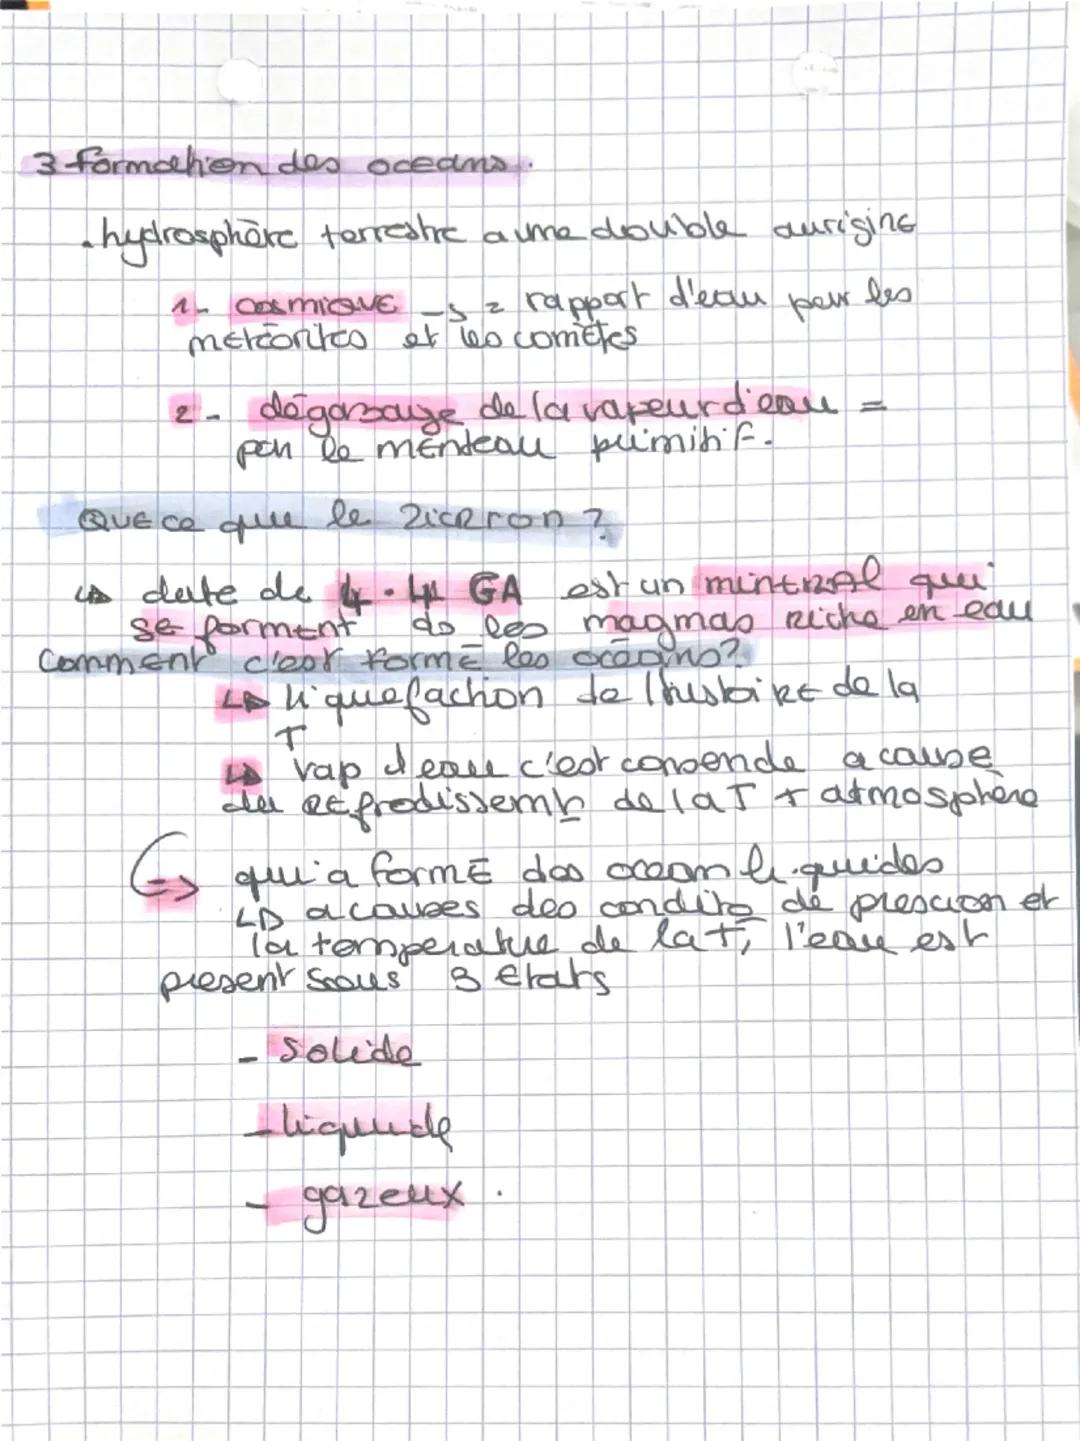 3 formation des oceans.
. hydrosphère terrestre a une double aurigine
1- cosmique → = rapport d'eau par les
météorites et les comètes
2 - dégazage de la vapeur d'eau =
par le menteau primitif.
Que ce que le zicrron ?
↳ date de 4.4 GA est un minéral qui
se forment ds les magmas riche en eau
Comment c'est formé les océans?
↳ liquefaction de l'histoire de la
T
↳ vap d'eau c'est consende a cause
du refrodissemnt de la T + atmosphère
↳ qui a formé des ocean liquides
↳ a causes des condits de presscion et
la temperature de la T, l'eau est
present sous 3 états
- solide
- liquide
- gazeux.